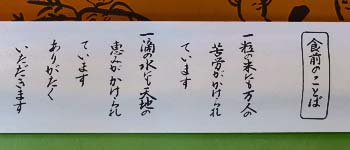 食前のことば
一粒の米にも万人の
苦労がかけられ
ています
一滴の水にも天地の
恵みがかけられ
ています
ありがたく
いただきます